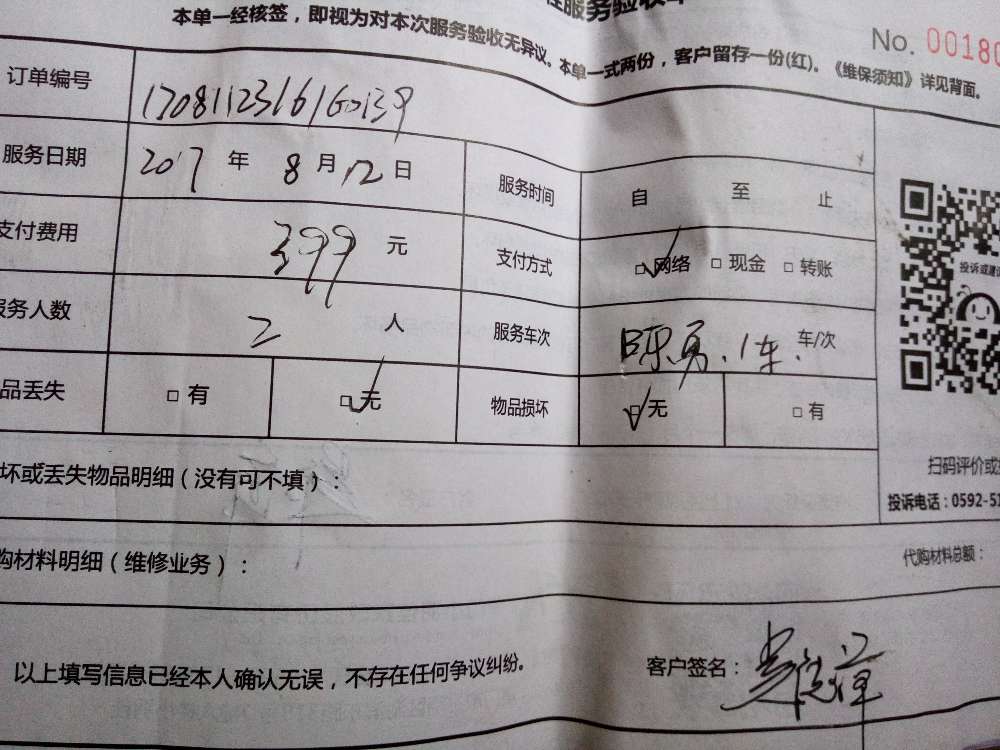 服务验收单
本单一经核签，即视为对本次服务验收无异议。本单一式两份，客户留存一份(红)。《维保须知》详见背面。
No. 00180
订单编号
服务日期 2017 年 8 月 12 日 服务时间 自 至 止
支付费用 399 元 支付方式 □网络 □现金 □转账
服务人数 2 人 服务车次 陈勇. 1车. 车/次
品丢失 □ 有 □ 无 物品损坏 □ 无 □ 有
投诉或建议
扫码评价或
投诉电话：0592-51
坏或丢失物品明细（没有可不填）：
购材料明细（维修业务）：
代购材料总额：
以上填写信息已经本人确认无误，不存在任何争议纠纷。
客户签名：